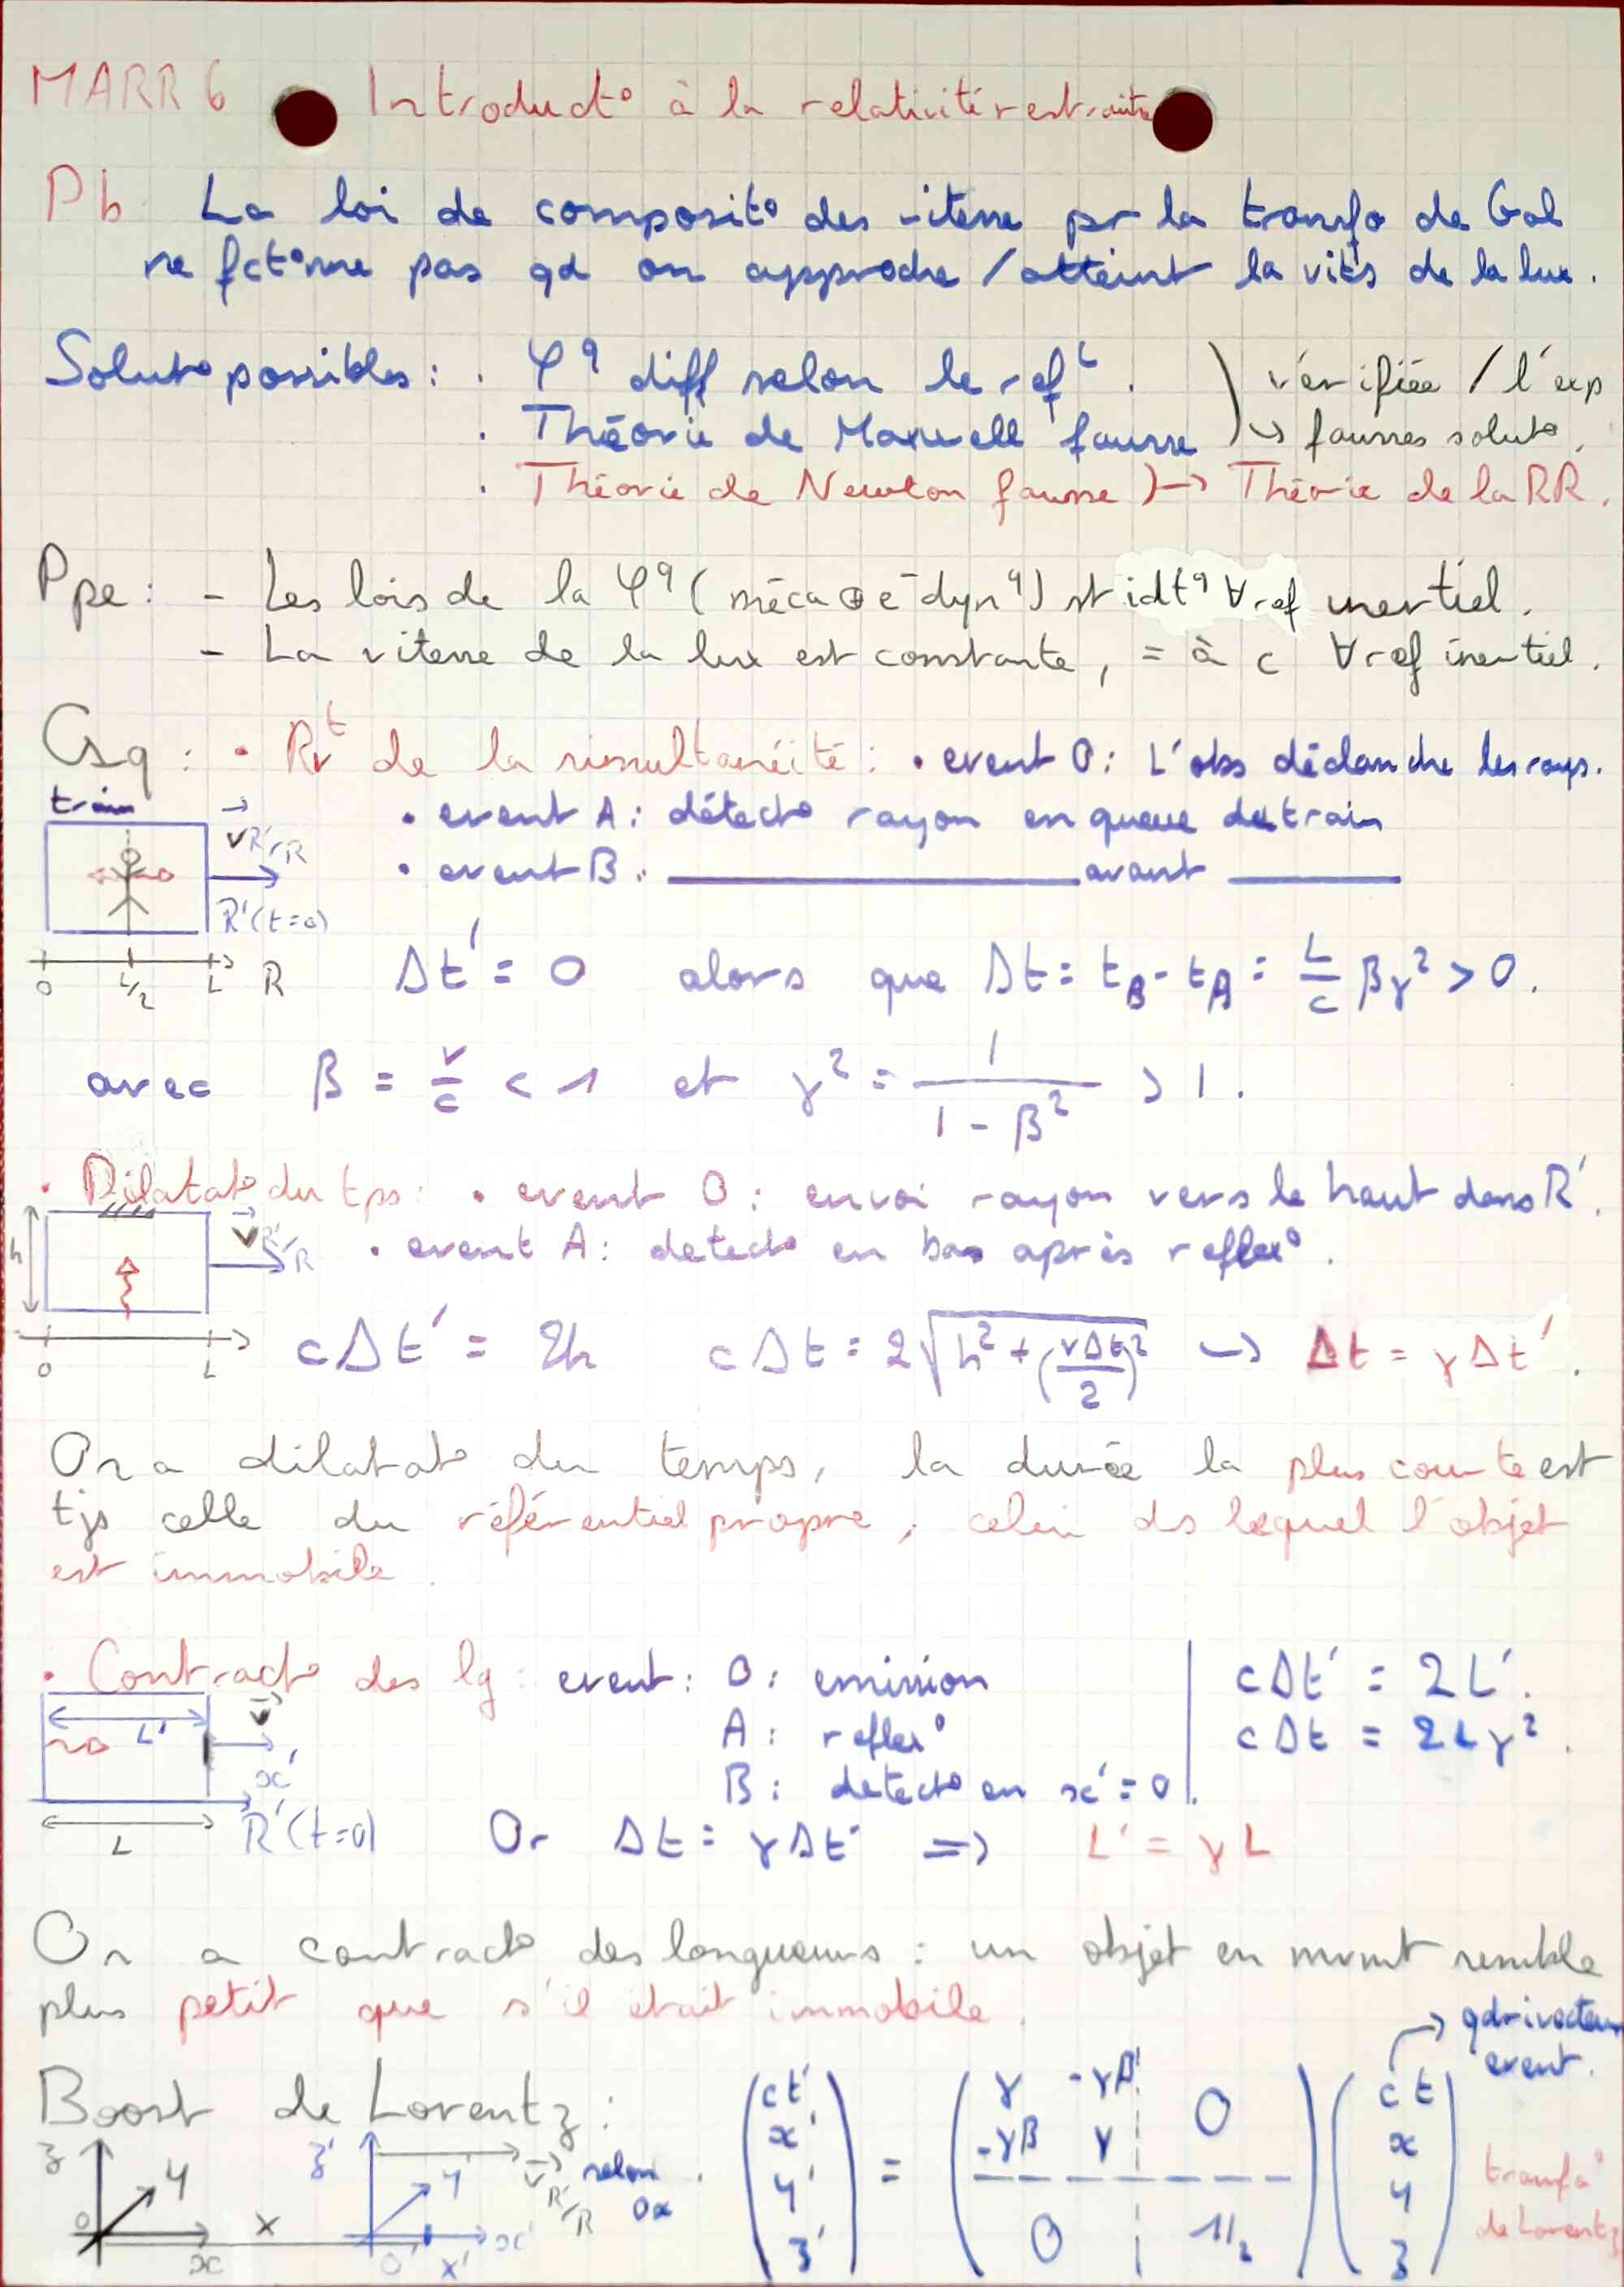 MARR 6 Introduct° à la relativité restrainte
Pb La loi de composit° des vitesse pr la transfo de Gal
ne fct°nne pas qd on approche / atteint la vités de la lux.
Solut° possibles : . φq diff selon le reft .
. Théorie de Maxwell fausse
) vérifiée / l'exp
↳ fausses solut°.
. Théorie de Newton fausse ) → Théorie de la RR.
Ppe : - Les lois de la φq (méca ⊕ e-dynq) st idtq ∀ ref inertiel.
- La vitesse de la lux est constante, = à c ∀ ref inertiel.
Csq : • Rvt de la simultanéité : • event O : L'obs déclanche les rays.
train
• event A : détect° rayon en queue du train
• event B : ______ avant ______
v R'/R
R'(t=0)
0 L/2 L R
Δt' = 0 alors que Δt = tB - tA = L/c βγ² > 0.
avec β = v/c < 1 et γ² = 1/(1 - β²) > 1.
• Dilatat° du tps : • event O : envoi rayon vers le haut dans R'.
• event A : detect° en bas après reflex°.
h
v R'/R
0 L
cΔt' = 2h cΔt = 2√(h² + (vΔt/2)²) ↪ Δt = γΔt'.
On a dilatat° du temps, la durée la plus courte est
tjs celle du référentiel propre, celui ds lequel l'objet
est immobile.
• Contract° des lg : event : O : emission
A : reflex°
B : detect° en x' = 0.
cΔt' = 2L'.
cΔt = 2Lγ².
L' v x'
L R'(t=0)
Or Δt = γΔt' => L' = γL
On a contract° des longueurs : un objet en mvmt semble
plus petit que s'il était immobile.
Boost de Lorentz :
(ct' x' y' z') = (γ -γβ 0 -γβ γ 0 1l2) (ct x y z)
→ qdrivecteur event.
transfo° de Lorentz
z y 0 x X
z' y' O' x' X' v R'/R selon Ox